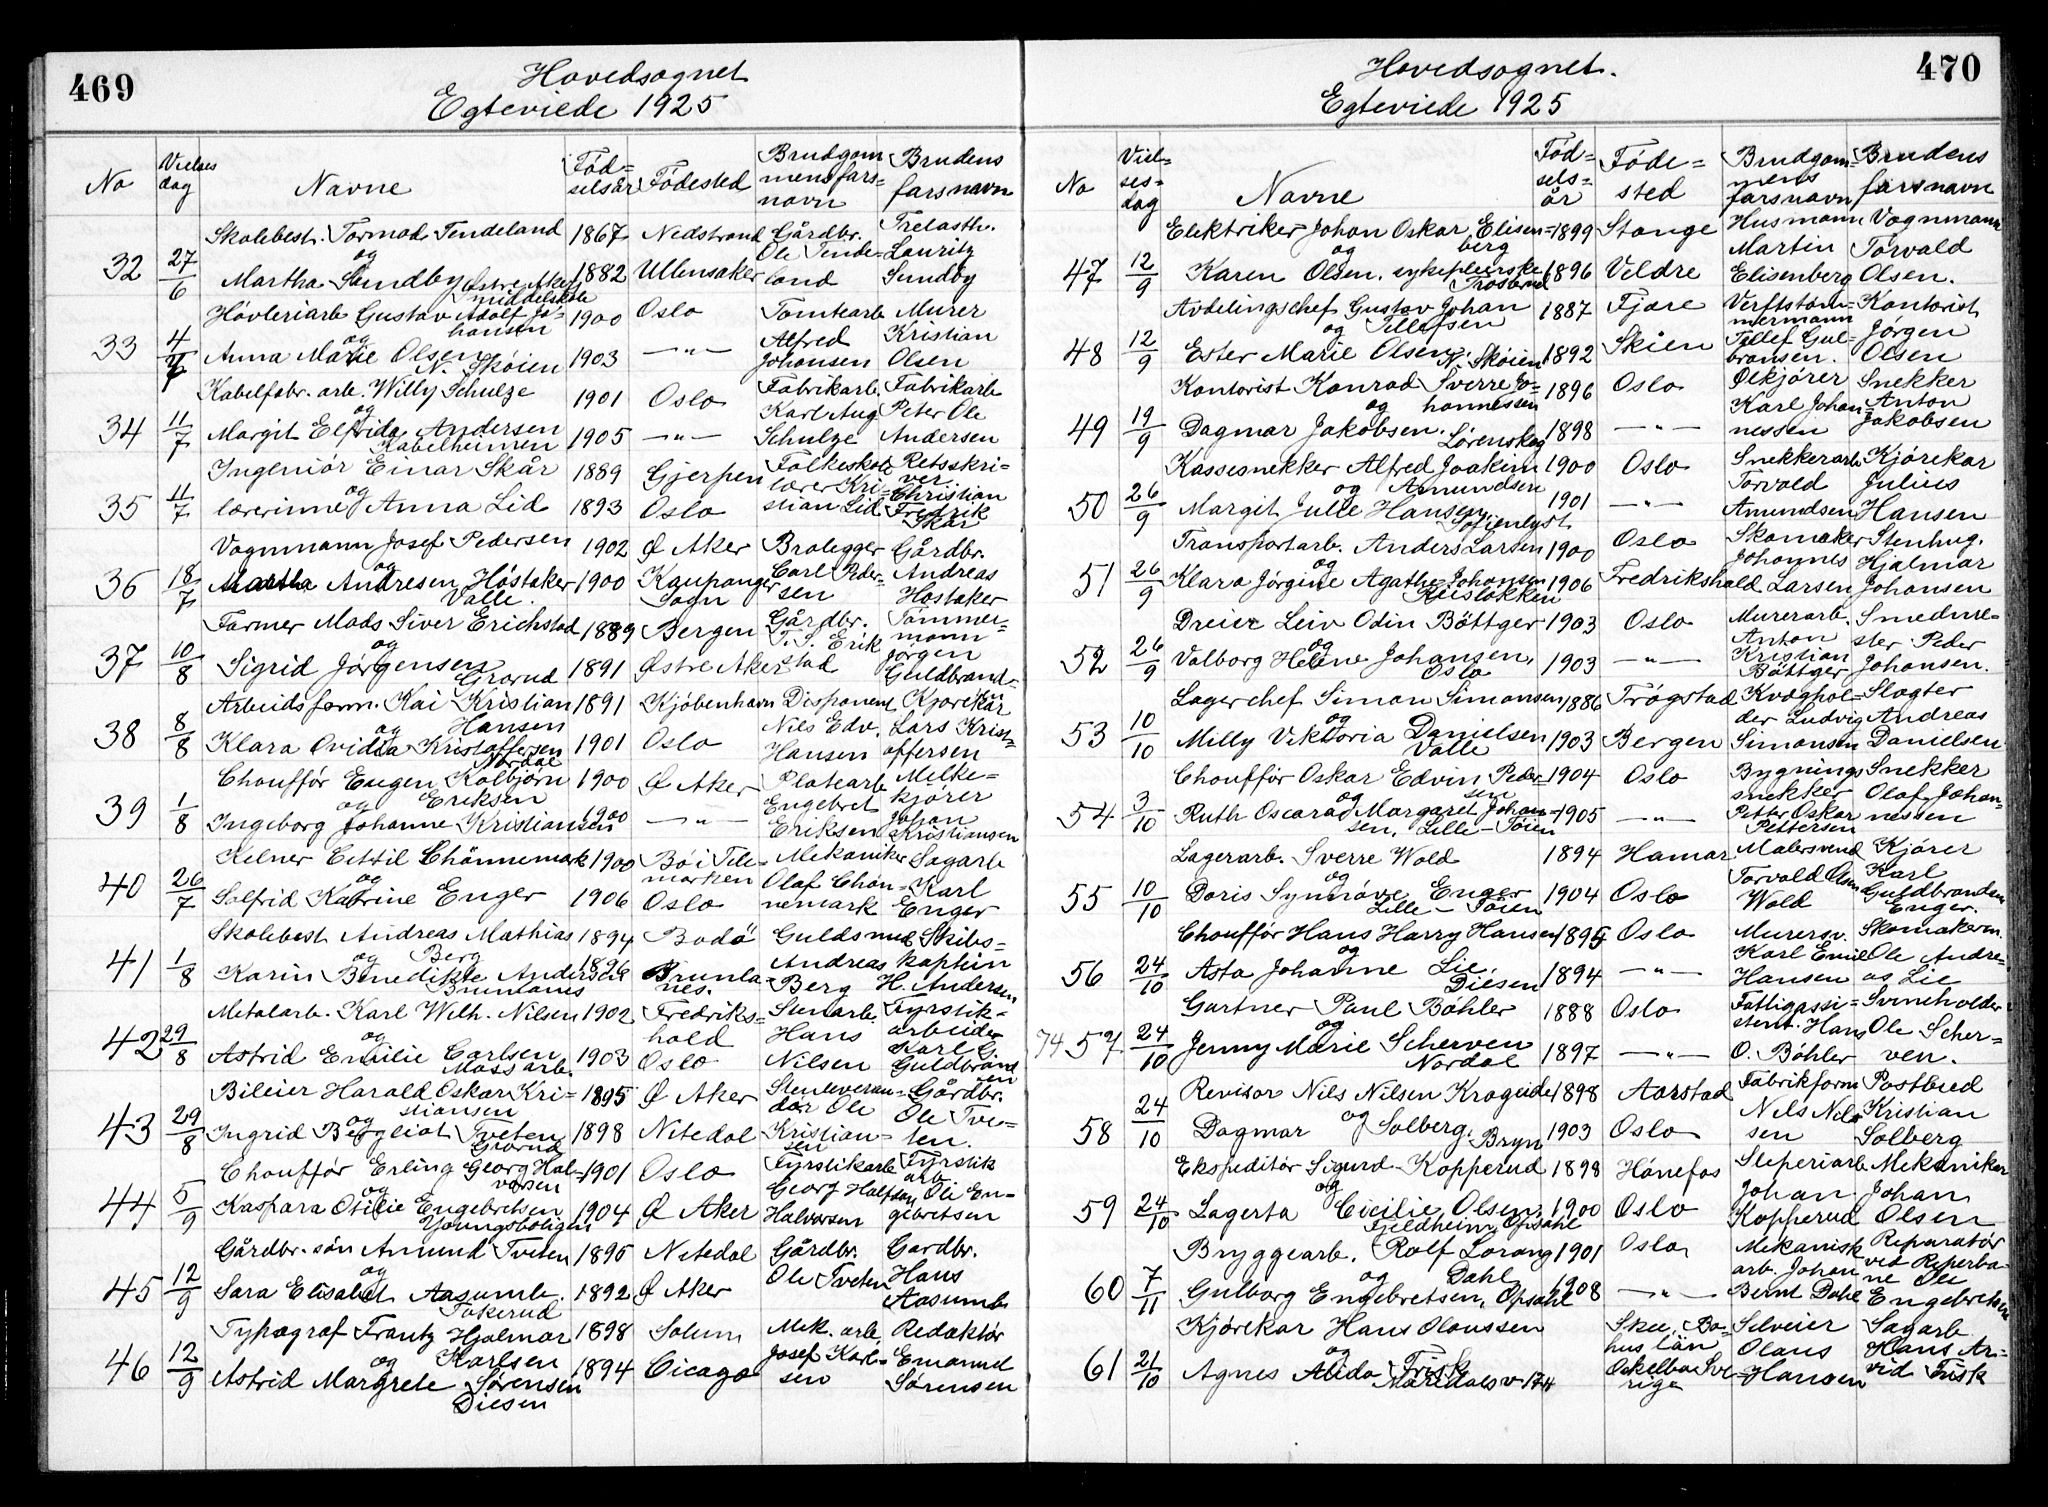 469
Hovedsognet
Egteviede 1925
No Vielses dag Navne Fødselsår Fødested Brudgommens farsnavn Brudens farsnavn
32 27/6 Skolebest. Tormod Tendeland 1867 Nedstrand Gårdbr. Ole Tendeland Trelasth. Lauritz Sundby
og Martha Sundby Østre Aker middelskole 1882 Ullensaker
33 4/7 Høvleriarb Gustav Adolf Johansen 1900 Oslo Tomtearb Alfred Johansen Murer Kristian Olsen
og Anna Marie Olsen N. Skøien 1903 —"—
34 11/7 Kabelfabr. arb. Willy Schulze 1901 Oslo Fabrikarb. Karl Aug Schulze Fabrikarb Peter Ole Andersen
og Margit Elfrida Andersen Kabelheimen 1905 —"—
35 11/7 Ingeniør Einar Skår 1889 Gjerpen Folkeskolelærer Kristian Lid Retsskriver Christian Fredrik Skår
og lærerinne Anna Lid 1893 Oslo
36 18/7 Vognmann Josef Pedersen 1902 Ø Aker Brolegger Carl Pedersen Gårdbr. Andreas Høstaker
og Martha Andresen Høstaker Valle 1900 Kaupanger Sogn
37 10/8 Farmer Mads Siver Erichstad 1889 Bergen Gårdbr. T. S. Erikstad Tømmermann Jørgen Guldbrand
og Sigrid Jørgensen Grorud 1891 Østre Aker
38 8/8 Arbeidsform. Kai Kristian Hansen 1891 Kjøbenhavn Disponent Nils Edv. Hansen Kjørekar Lars Kristoffersen
og Klara Ovidia Kristoffersen Nordal 1901 Oslo
39 1/8 Chouffør Eugen Kolbjørn Eriksen 1900 Ø Aker Platearb Engebret Eriksen Melkekjører Johan Kristiansen
og Ingeborg Johanne Kristiansen 1900 —"—
40 26/7 Kelner Cettil Chønnemark 1900 Bø i Telemarken Mekaniker Olaf Chønnemark Sagarb Karl Enger
og Solfrid Katrine Enger 1906 Oslo
41 1/8 Skolebest Andreas Mathias Berg 1894 Bodø Guldsmed Andreas Berg Skibskaptein H. Andersen
og Karin Benedikte Andersen 1896 Brunlanes.
42 29/8 Metalarb. Karl Wilh. Nilsen 1902 Fredrikshold Hans Nilsen Fyrstikarbeider Karl G. Guldbrandsen
og Astrid Emilie Carlsen 1903 Oslo
43 29/8 Bileier Harald Oskar Kristiansen 1895 Ø Aker Stenleverandør Ole Kristiansen Gårdbr. Ole Tveten.
og Ingrid Bergliot Tveten Grorud 1898 Nitedal
44 5/9 Chouffør Erling Georg Halvorsen 1901 Oslo Fyrstikarb Georg Halfdan Halvorsen Fyrstik arb Ole Engebretsen
og Kaspara Otilie Engebretsen Youngsboligen 1904 Ø Aker
45 12/9 Gårdbr. søn Amund Tveten 1895 Nitedal Gårdbr. Ole Tveten Gardbr. Hans Aasumb
og Sara Elisabet Aasumb. Fokerud 1892 Ø Aker
46 12/9 Typograf Frantz Hjalmar Karlsen 1898 Solum Mek. arb. Josef Karlsen Redaktør Emanuel Sørensen
og Astrid Margrete Sørensen Diesen 1894 Cicago
470
Hovedsognet.
Egteviede 1925
No Vielsesdag Navne Fødselsår Fødested Brudgommens farsnavn Brudens farsnavn
47 12/9 Elektriker Johan Oskar Elisenberg 1899 Stange Husmann Martin Elisenberg Vognmann Torvald Olsen.
og Karen Olsen. sykepleierske Trosterud 1896 Veldre
48 12/9 Avdelingschef Gustav Johan Tellefsen 1887 Fjære Verftstømmermann Tellef Gulbransen. Kontorist Jørgen Olsen
og Ester Marie Olsen. N. Skøien 1892 Skien
49 19/9 Kontorist Konrad Sverre Johannessen 1896 Oslo Ølkjører Karl Johannessen Snekker Anton Jakobsen
og Dagmar Jakobsen. Lørenskog 1898 —"—
50 26/9 Kassesnekker Alfred Joakim Amundsen 1900 Oslo Snekkerarb Torvald Amundsen Kjørekar Julius Hansen
og Margit Julle Hansen, Sofienlyst 1901 —"—
51 26/9 Transportarb. Anders Larsen 1900 Oslo Skomaker Johannes Larsen Stenhug. Hjalmar Johansen
og Klara Jørgine Agathe Johansen Keisløkken 1906 Fredrikshald
52 26/9 Dreier Leiv Odin Bøttger 1903 Oslo Murerarb. Anton Kristian Bøttger Smedmester Peder Johansen.
og Valborg Helene Johansen, Oslo 1903 —"—
53 10/10 Lagerchef Simon Simonsen 1886 Trøgstad Kvægholder Ludvig Simonsen Slagter Andreas Danielsen
og Milly Viktoria Danielsen Valle 1903 Bergen
54 3/10 Chouffør Oskar Edvin Pedersen 1904 Oslo Bygningssnekker Petter Oskar Pettersen Snekker Olaf Johannessen
og Ruth Oscara Margaret Johansen, Lille-Tøien 1905 —"—
55 10/10 Lagerarb. Sverre Wold 1894 Hamar Malersvend Torvald Olsen Wold Kjører Karl Guldbrandsen Enger.
og Doris Synnøve Enger Lille-Tøien 1904 Oslo
56 24/10 Chouffør Hans Harry Hansen 1895 Oslo Murersv. Karl Emil Hansen Skomakerm. Ole Andreas Lie
og Asta Johanne Lie Diesen 1894 —"—
74 57 24/10 Gartner Paul Bøhler 1888 Oslo Fattigassistent. Hans O. Bøhler Svineholder Ole Scherven.
og Jenny Marie Scherven Nordal 1897 —"—
58 24/10 Revisor Nils Nilsen Krageide 1898 Aarstad Fabrikform Nels Nelsen Postbud Kristian Solberg
og Dagmar Solberg. Bryn 1903 Oslo
59 24/10 Ekspeditør Sigurd Kopperud 1898 Hønefos Sleperiarb Johan Kopperud Mekaniker Johan Olsen
og Lagerta Cicilie Olsen, Fjeldheim, Opsahl 1900 Oslo
60 7/11 Bryggearb. Rolf Lorang Dahl 1901 Oslo Mekanisk arb. Johan Bernt Dahl Reparatør ved Reperbane Ole Engebretsen
og Gulborg Engebretsen, Opsahl 1908 —"—
61 21/10 Kjørekar Hans Olaussen Skee, Bohus län Selveier Olaus Hansen Sagarb Hans Arvid Frisk
og Agnes Alida Frisk Maridalsv 174 Ockelbo Sverige